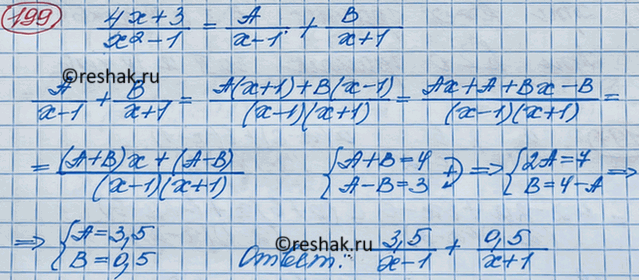 199 (4x+3)/(x²-1) = A/(x-1) + B/(x+1)
©reshak.ru
A/(x-1) + B/(x+1) = (A(x+1)+B(x-1))/((x-1)(x+1)) = (Ax+A+Bx-B)/((x-1)(x+1)) =
= ((A+B)x+(A-B))/((x-1)(x+1)) {A+B=4 A-B=3 (+) => {2A=7 B=4-A =>
=> {A=3,5 B=0,5 Ответ: 3,5/(x-1) + 0,5/(x+1)
©reshak.ru